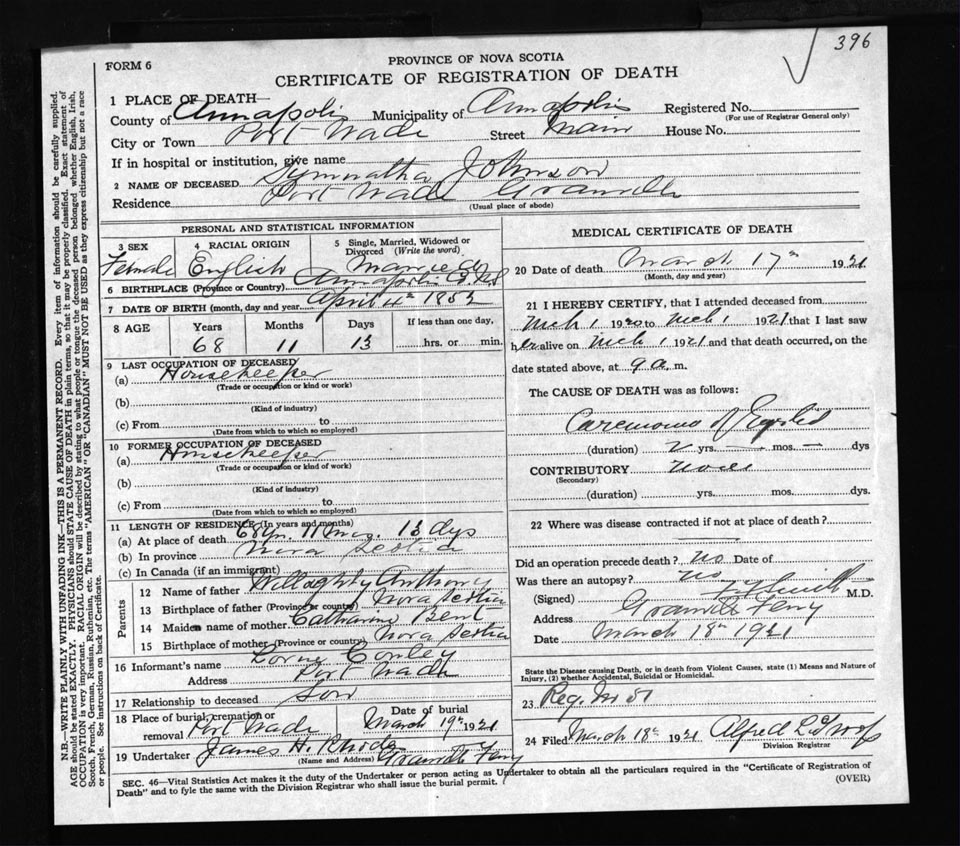 396
FORM 6
PROVINCE OF NOVA SCOTIA
CERTIFICATE OF REGISTRATION OF DEATH
N.B.—WRITE PLAINLY WITH UNFADING INK—THIS IS A PERMANENT RECORD. Every item of information should be carefully supplied.
AGE should be stated EXACTLY. PHYSICIANS should STATE CAUSE OF DEATH in plain terms, so that it may be properly classified. Exact statement of
OCCUPATION is very important. RACIAL ORIGIN will be described by stating to what people or tongue the deceased person belonged whether English, Irish,
Scotch, French, German, Russian, Ruthenian, etc. The terms "AMERICAN" OR "CANADIAN" MUST NOT BE USED as they express citizenship but not a race
or people. See instructions on back of Certificate.
1 PLACE OF DEATH—
County of Annapolis Municipality of Annapolis Registered No.
(For use of Registrar General only)
City or Town Port Wade Street Main House No.
If in hospital or institution, give name
2 NAME OF DECEASED Johnson
Residence Port Wade Granville
(Usual place of abode)
PERSONAL AND STATISTICAL INFORMATION
3 SEX Female
4 RACIAL ORIGIN English
5 Single, Married, Widowed or Divorced (Write the word) Married
6 BIRTHPLACE (Province or Country) Annapolis Co NS
7 DATE OF BIRTH (month, day and year) April 4th 1852
8 AGE Years Months Days If less than one day,
68 11 13 hrs. or min.
9 LAST OCCUPATION OF DECEASED
(a) Housekeeper
(Trade or occupation or kind of work)
(b)
(Kind of industry)
(c) From to
(Date from which to which so employed)
10 FORMER OCCUPATION OF DECEASED
(a) Housekeeper
(Trade or occupation or kind of work)
(b)
(Kind of industry)
(c) From to
(Date from which to which so employed)
11 LENGTH OF RESIDENCE (In years and months)
(a) At place of death 68 yr. 11 mos. 13 dys
(b) In province Nova Scotia
(c) In Canada (if an immigrant)
Parents
12 Name of father Anthony
13 Birthplace of father (Province or country) Nova Scotia
14 Maiden name of mother Catharine Bent
15 Birthplace of mother (Province or country) Nova Scotia
16 Informant's name Lorne Conley
Address Port Wade
17 Relationship to deceased Son
18 Place of burial, cremation or removal Port Wade Date of burial March 19th 1921
19 Undertaker James H. Rhodes Granville Ferry
(Name and Address)
MEDICAL CERTIFICATE OF DEATH
20 Date of death March 17th 1921
(Month, day and year)
21 I HEREBY CERTIFY, that I attended deceased from
Mch 1 1920 to Mch 1 1921 that I last saw
her alive on Mch 1 1921 and that death occurred, on the
date stated above, at 9 a. m.
The CAUSE OF DEATH was as follows:
(duration) 2 yrs. — mos. — dys
CONTRIBUTORY
(Secondary)
(duration) yrs. mos. dys.
22 Where was disease contracted if not at place of death?
Did an operation precede death? no Date of
Was there an autopsy? no
(Signed) M.D.
Address Granville Ferry
Date March 18th 1921
State the Disease causing Death, or in death from Violent Causes, state (1) Means and Nature of
Injury, (2) whether Accidental, Suicidal or Homicidal.
23 Reg. No 81
24 Filed March 18th 1921 Alfred
Division Registrar
SEC. 46—Vital Statistics Act makes it the duty of the Undertaker or person acting as Undertaker to obtain all the particulars required in the "Certificate of Registration of
Death" and to fyle the same with the Division Registrar who shall issue the burial permit.
(OVER)